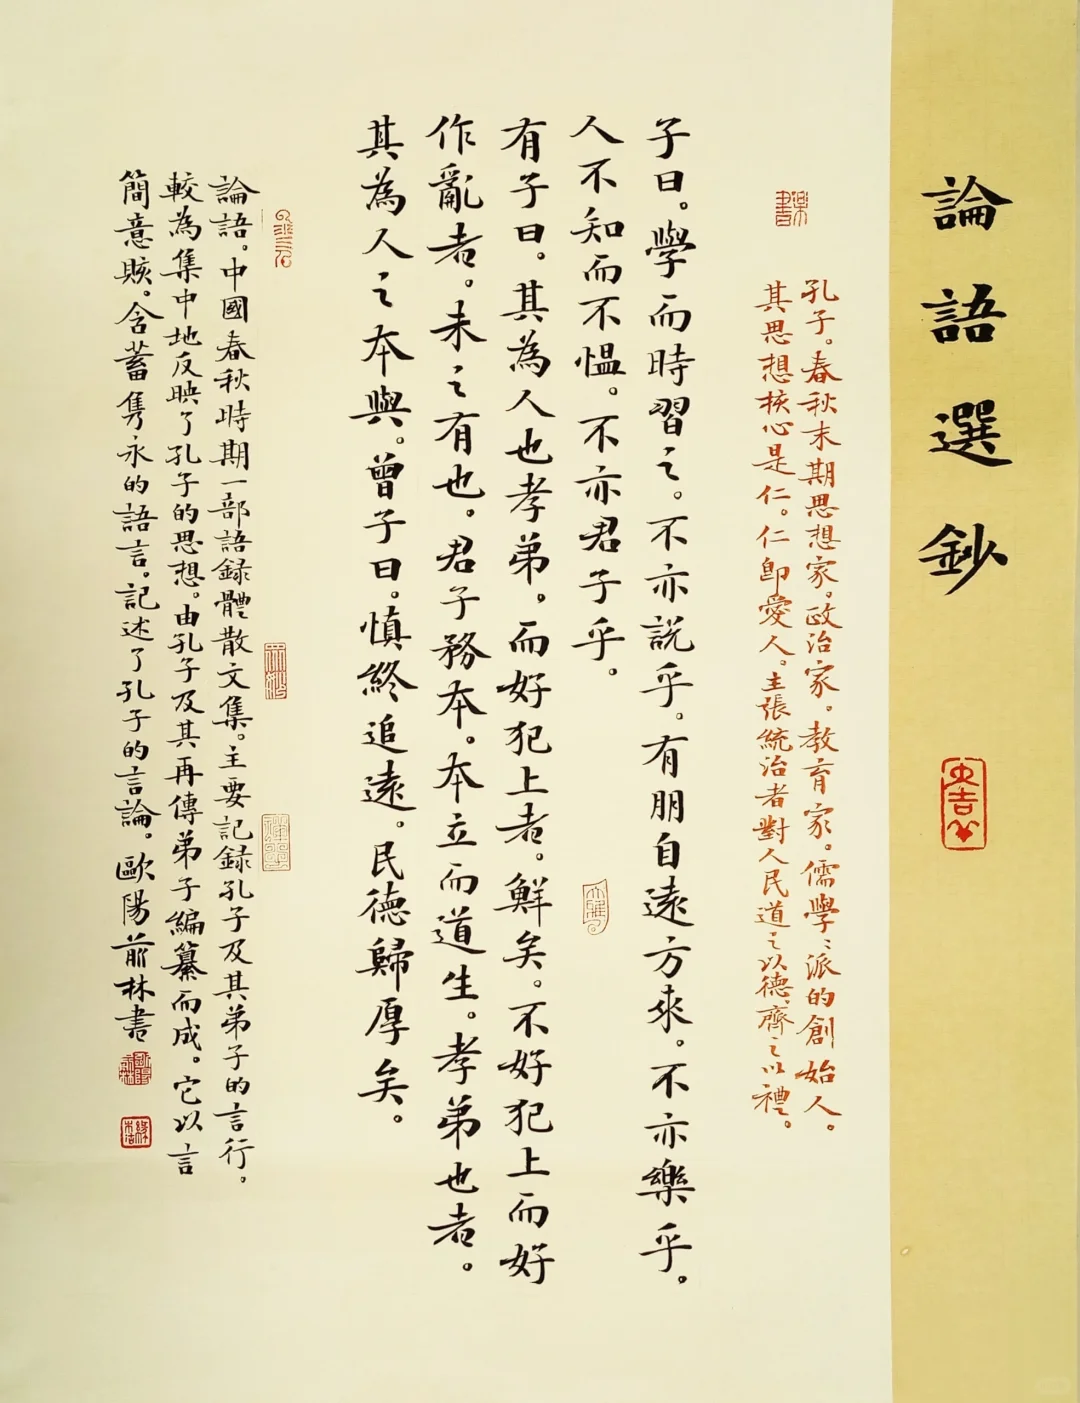 論語選鈔
孔子。春秋末期思想家。政治家。教育家。儒學學派的創始人。
其思想核心是仁。仁即愛人。主張統治者對人民道之以德、齊之以禮。
子曰。學而時習之。不亦說乎。有朋自遠方來。不亦樂乎。
人不知而不愠。不亦君子乎。
有子曰。其為人也孝弟。而好犯上者。鮮矣。不好犯上而好
作亂者。未之有也。君子務本。本立而道生。孝弟也者。
其為人之本與。曾子曰。慎終追遠。民德歸厚矣。
論語。中國春秋時期一部語録體散文集。主要記録孔子及其弟子的言行。
較為集中地反映了孔子的思想。由孔子及其再傳弟子編纂而成。它以言
簡意賅。含蓄隽永的語言。記述了孔子的言論。歐陽前林書